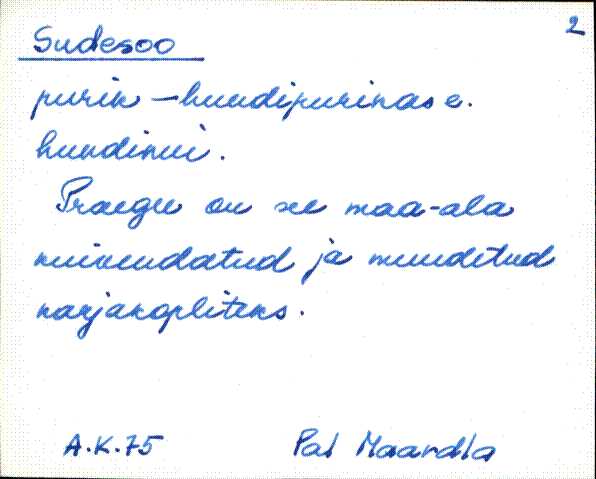 2
Sudesoo
purik – hundipurikas e.
hundinui.
Praegu on see maa-ala
kuivendatud ja muudetud
karjakopliteks.
A.K.75 Pal Maardla